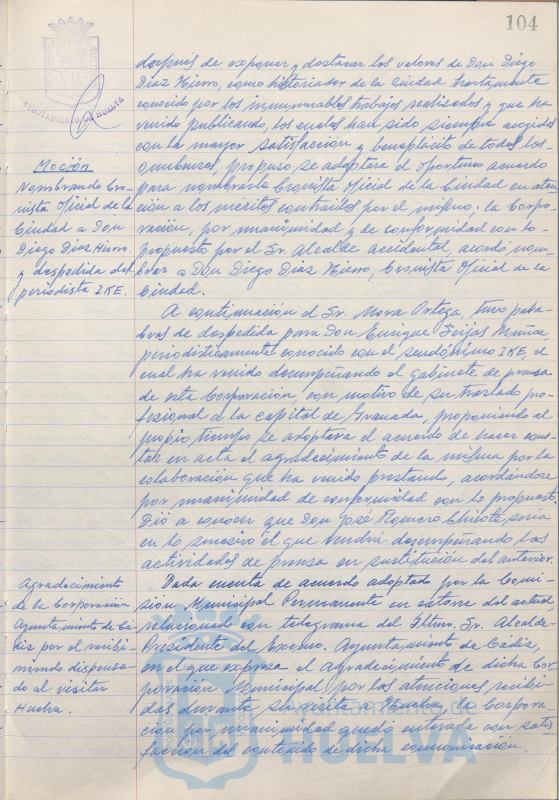 104
AYUNTAMIENTO DE HUELVA
después de exponer y destacar los valores de Don Diego
Díaz Hierro, como historiador de la Ciudad
conocido por los innumerables trabajos realizados y que ha
venido publicando, los cuales han sido siempre acogidos
con la mayor satisfacción y beneplácito de todos los
onubenses, propuso se adoptara el oportuno acuerdo
para nombrarle Cronista Oficial de la Ciudad en aten-
ción a los méritos contraídos por el mismo; la Corpo-
ración, por unanimidad y de conformidad con lo
propuesto por el Sr. Alcalde accidental, acordó nom-
brar a Don Diego Díaz Hierro, Cronista Oficial de la
Ciudad.
Moción
Nombrando Cro-
nista Oficial de la
Ciudad a Don
Diego Díaz Hierro.
y despedida del
periodista IKE.
A continuación el Sr. Mora Ortega, tuvo pala-
bras de despedida para Don Enrique Seijas Muñoz,
periodísticamente conocido con el seudónimo IKE, el
cual ha venido desempeñando el gabinete de prensa
de esta Corporación, con motivo de su traslado pro-
fesional a la capital de Granada, proponiendo al
propio tiempo se adoptara el acuerdo de hacer cons-
tar en acta el agradecimiento de la misma por la
colaboración que ha venido prestando, acordándose
por unanimidad de conformidad con lo propuesto.
Dió a conocer que Don José Romero Chicote, sería
en lo sucesivo el que vendrá desempeñando las
actividades de prensa en sustitución del anterior.
Agradecimiento
de la Corporación
Ayuntamiento de Cá-
diz por el recibi-
miento dispensa-
do al visitar
Huelva.
Dada cuenta de acuerdo adoptado por la Comi-
sión Municipal Permanente en catorce del actual
relacionado con telegrama del Iltmo. Sr. Alcalde-
Presidente del Excmo. Ayuntamiento de Cádiz,
en el que expresa el agradecimiento de dicha Cor-
poración Municipal, por las atenciones recibi-
das durante su visita a Huelva, la Corpora-
ción por unanimidad quedó enterada con satis-
facción del contenido de dicha comunicación.
Ayuntamiento de
HUELVA